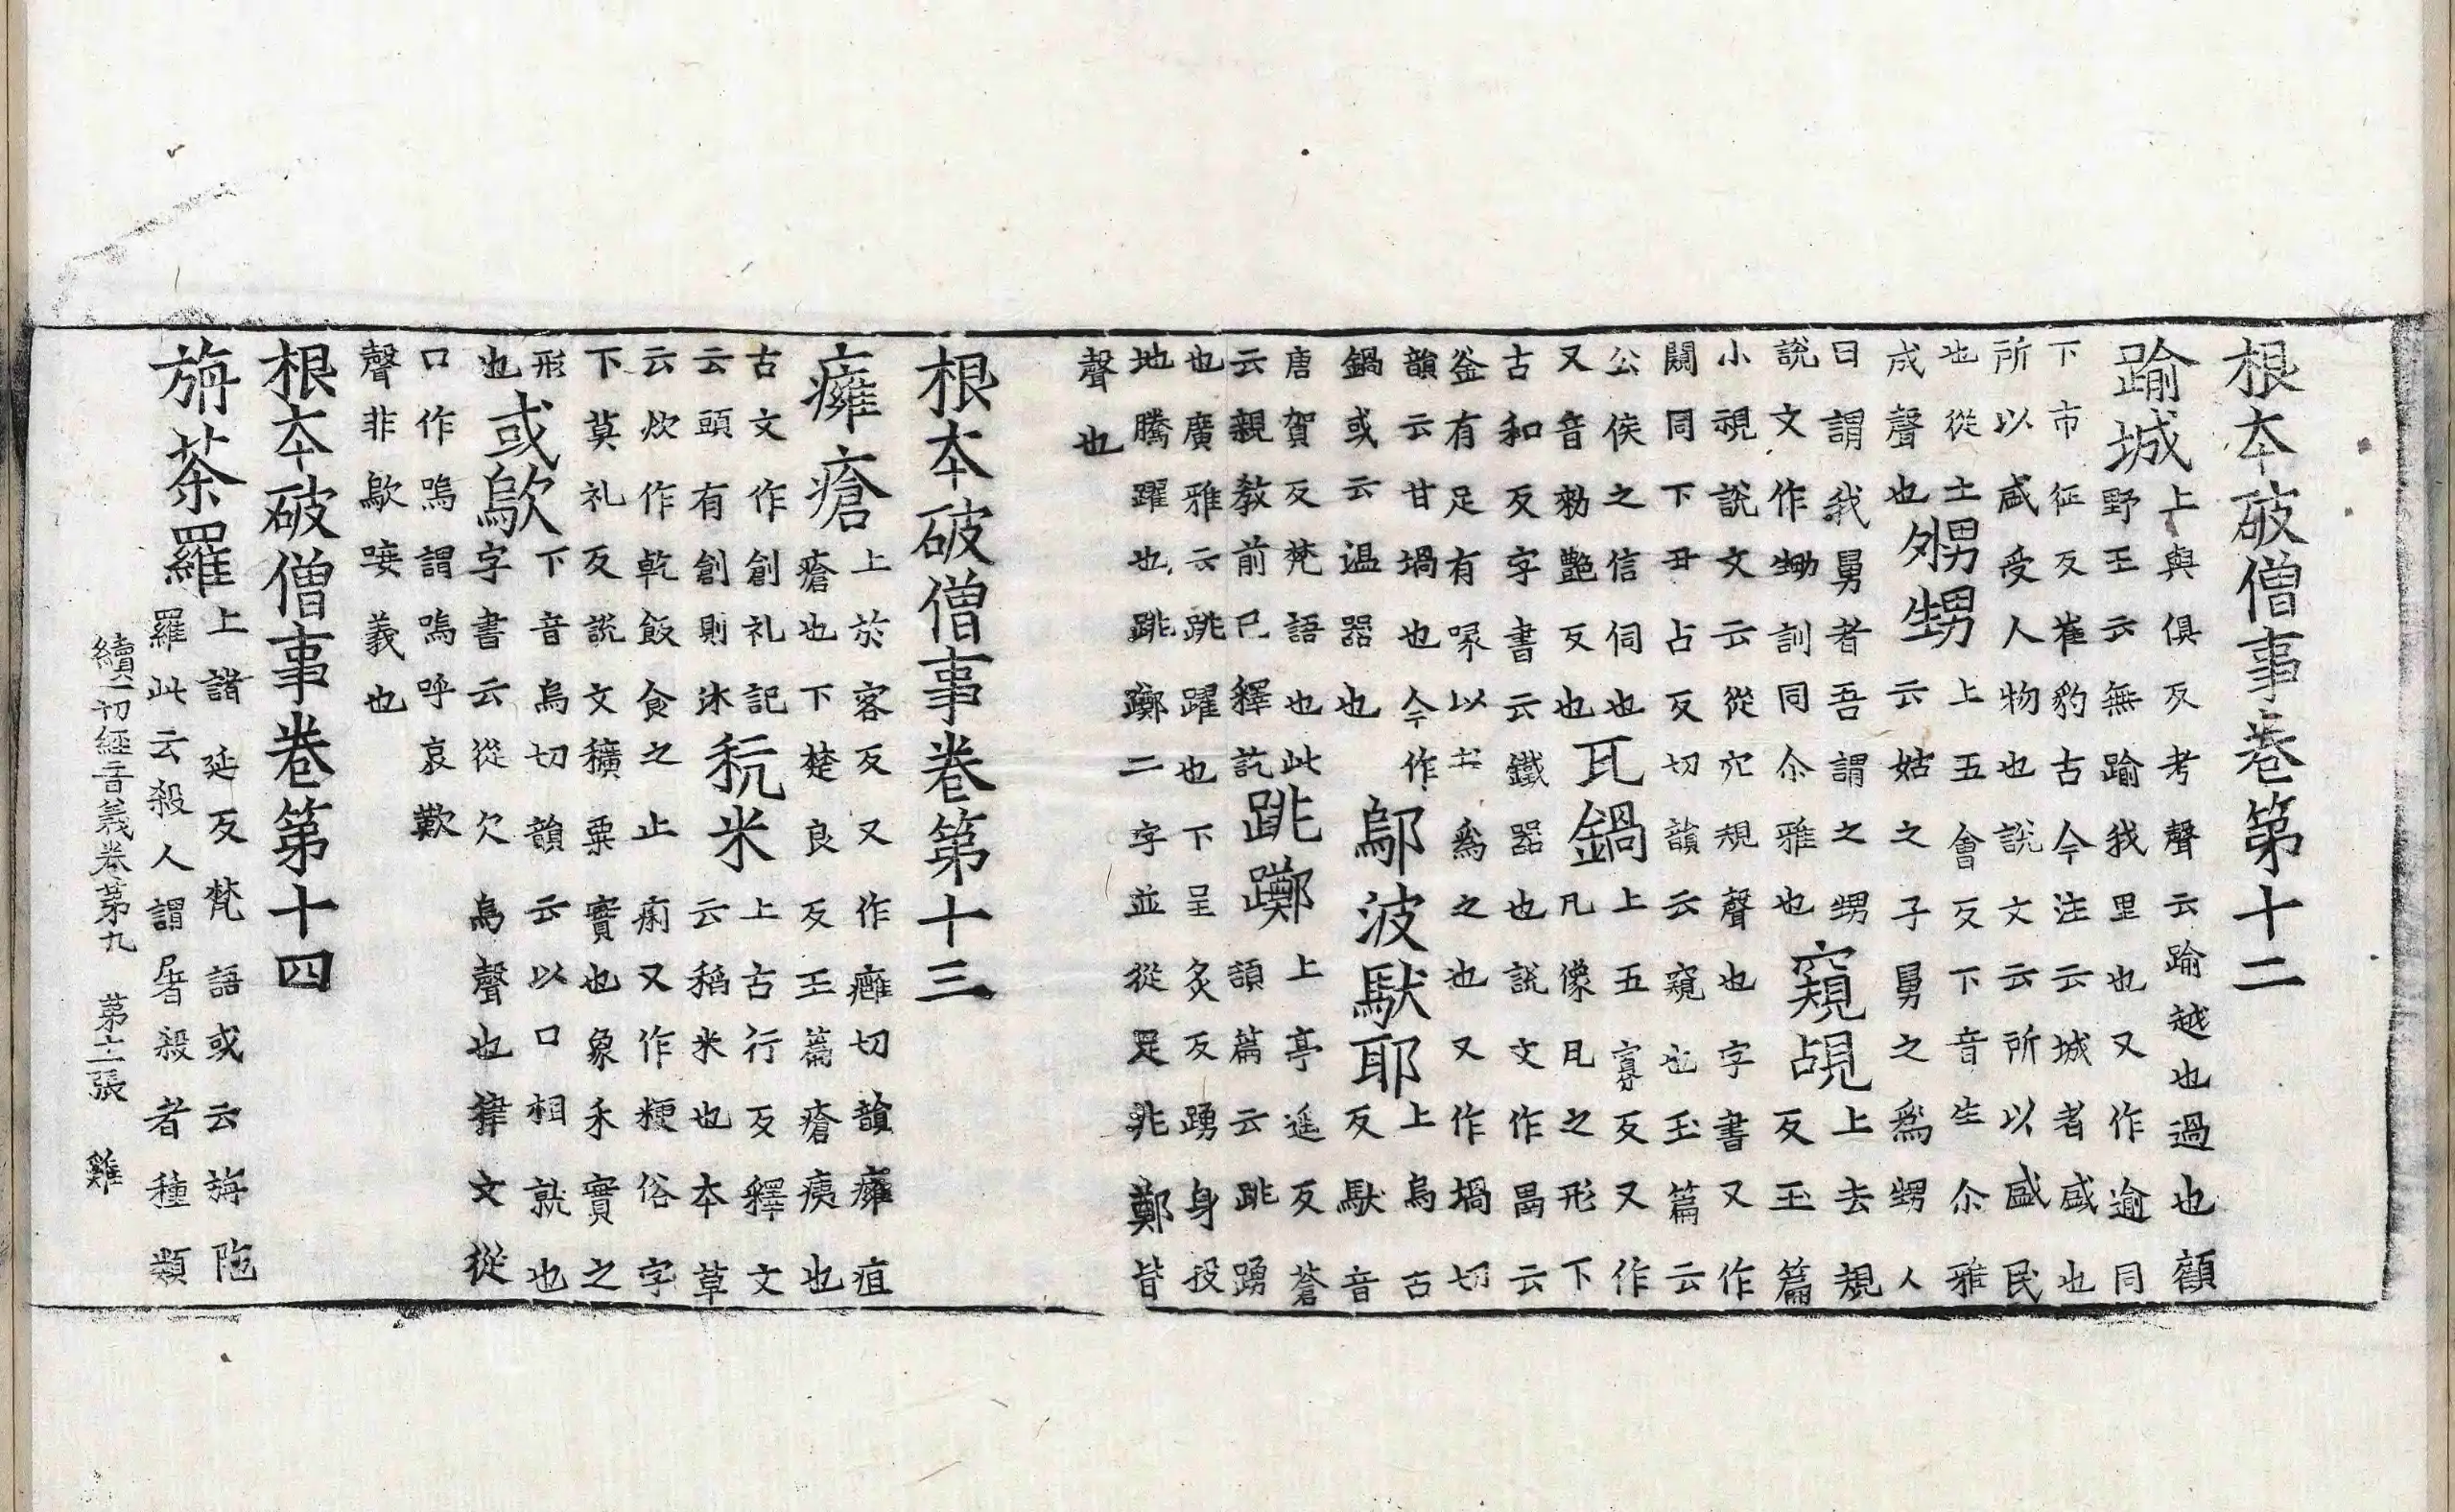 根本破僧事卷第十二
踰城
上與俱反考聲云踰越也過也顧
野王云無踰我里也又作逾同
下市征反崔豹古今注云城者盛也
所以盛受人物也說文云所以盛民
也從土
成聲也
甥
上五會反下音生尒雅
云姑之子舅之為甥人
曰謂我舅者吾謂之甥
說文作訓同尒雅也
窺覘
上去規
反玉篇
小視說文云從穴規聲也字書又作
闚同下丑占反切韻云窺也玉篇云
公侯之信伺也
又音勑艶反也
瓦鍋
上五寡反又作
凡像凡之形下
古和反字書云鐵器也說文作䥶云
釜有足有喙以土為之也又作堝切
韻云甘堝也今作
鍋或云温器也
鄔波馱耶
上烏古
反馱音
唐賀反梵語也此
云親教前已釋訖
跳躑
上亭遥反蒼
頡篇云跳踊
也廣雅云跳躍也下呈炙反踊身投
地騰躍也跳躑二字並從足兆鄭皆
聲也
根本破僧事卷第十三
癰瘡
上於容反又作癕切韻癰疽
瘡也下楚良反玉篇瘡痍也
古文作創礼記
云頭有創則沐
秔米
上古行反釋文
云稻米也本草
云炊作乾飯食之止痢又作粳俗字
下莫礼反說文穬粟實也象禾實之
形
也
或歍
下音烏切韻云以口相就也
字書云從欠烏聲也律文從
口作嗚謂嗚呼哀歎
聲非歍唼義也
根本破僧事卷第十四
旃荼羅
上諸延反梵語或云旃陁
羅此云殺人謂屠殺者種類
續一切經音義卷第九 第十二張 雞